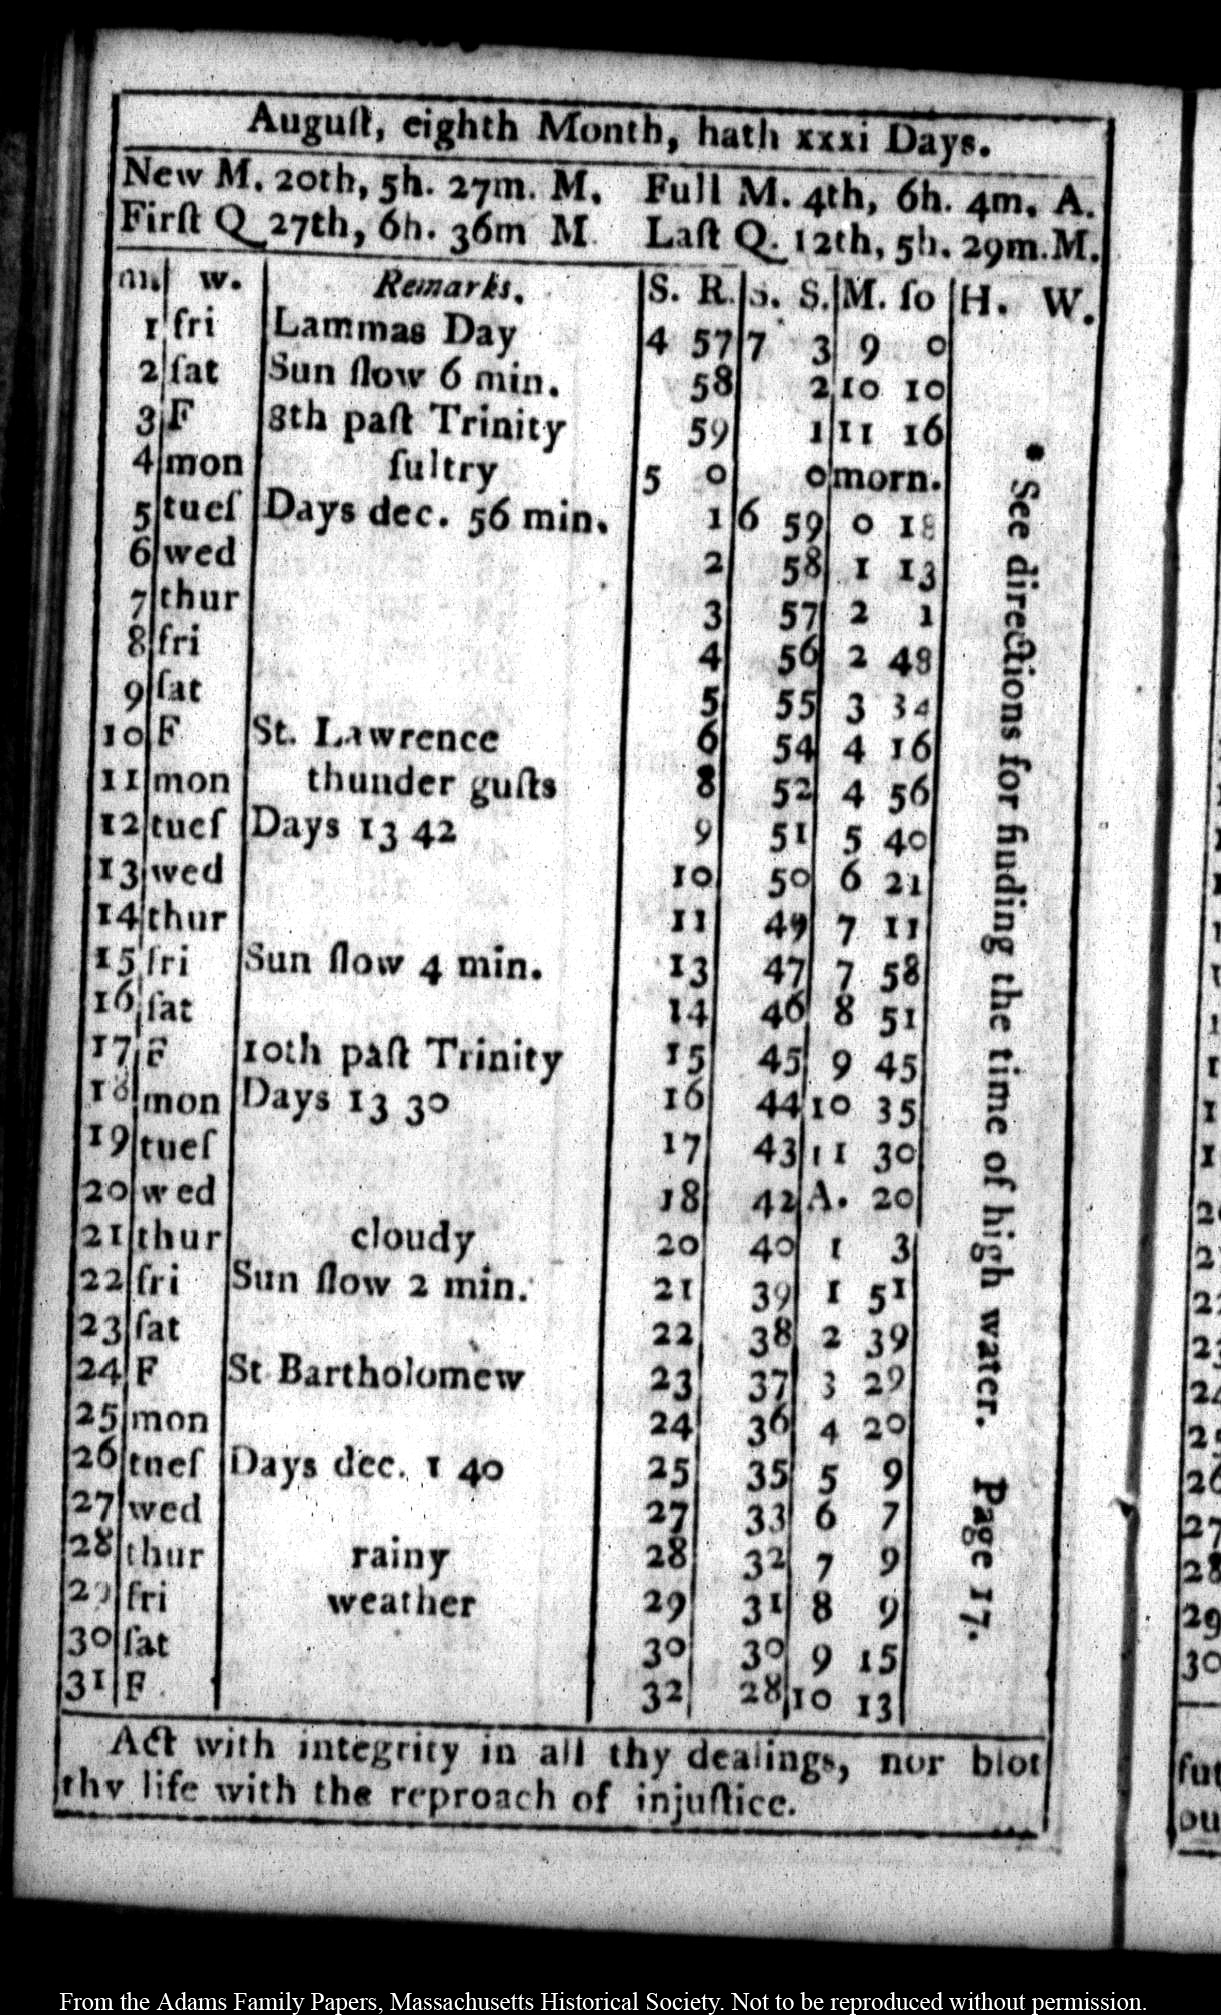 Auguſt, eighth Month, hath xxxi Days.
New M. 20th, 5h. 27m. M. Full M. 4th, 6h. 4m. A.
Firſt Q 27th, 6h. 36m M. Laſt Q. 12th, 5h. 29m. M.
m. w. Remarks. S. R. S. S. M. ſo H. W.
1 fri Lammas Day 4 57 7 3 9 0
2 ſat Sun ſlow 6 min. 58 2 10 10
3 F 8th paſt Trinity 59 1 11 16
4 mon ſultry 5 0 0 morn.
5 tueſ Days dec. 56 min. 1 6 59 0 18
6 wed 2 58 1 13
7 thur 3 57 2 1
8 fri 4 56 2 48
9 ſat 5 55 3 34
10 F St. Lawrence 6 54 4 16
11 mon thunder guſts 8 52 4 56
12 tueſ Days 13 42 9 51 5 40
13 wed 10 50 6 21
14 thur 11 49 7 11
15 fri Sun ſlow 4 min. 13 47 7 58
16 ſat 14 46 8 51
17 F 10th paſt Trinity 15 45 9 45
18 mon Days 13 30 16 44 10 35
19 tueſ 17 43 11 30
20 wed 18 42 A. 20
21 thur cloudy 20 40 1 3
22 fri Sun ſlow 2 min. 21 39 1 51
23 ſat 22 38 2 39
24 F St Bartholomew 23 37 3 29
25 mon 24 36 4 20
26 tueſ Days dec. 1 40 25 35 5 9
27 wed 27 33 6 7
28 thur rainy 28 32 7 9
29 fri weather 29 31 8 9
30 ſat 30 30 9 15
31 F 32 28 10 13
* See directions for finding the time of high water. Page 17.
Act with integrity in all thy dealings, nor blot
thy life with the reproach of injuſtice.
From the Adams Family Papers, Massachusetts Historical Society. Not to be reproduced without permission.